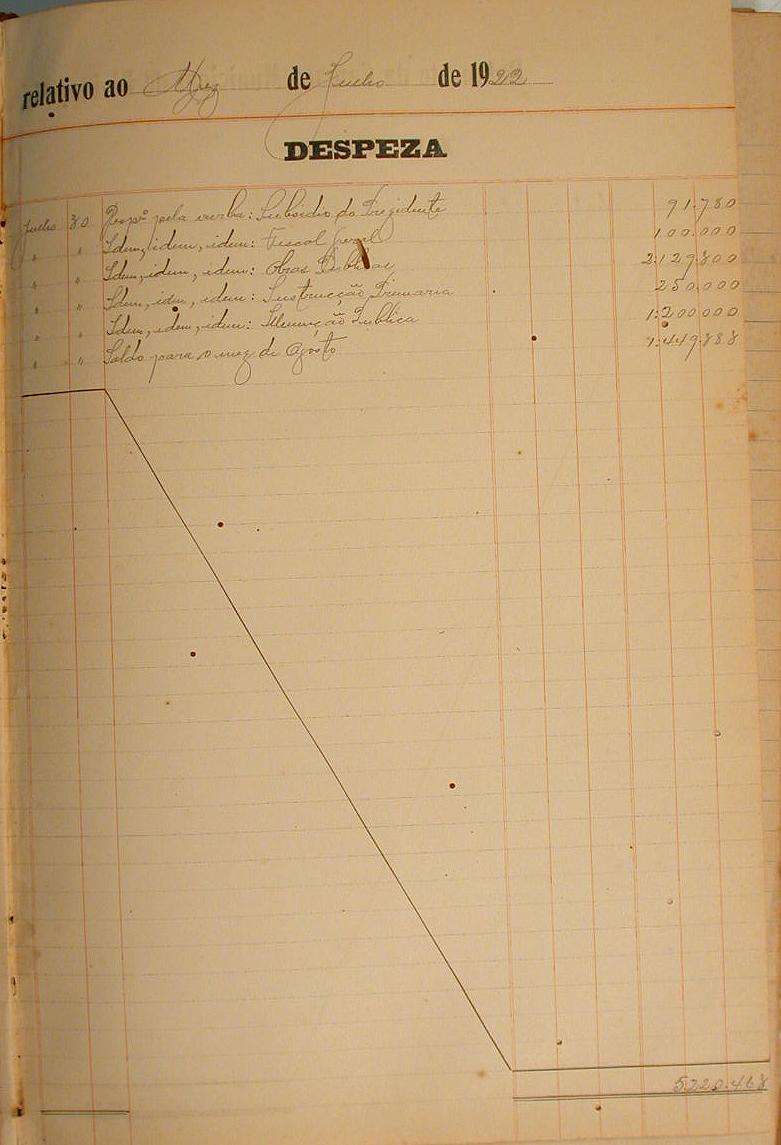 relativo ao Mez de Julho de 1922
DESPEZA
Julho 30 Desp.ª pela verba: Subsidio do Prezidente 91.780
" " Idem, idem, idem: Fiscal Geral 100.000
" " Idem, idem, idem: Obras Publicas 2:129.800
" " Idem, idem, idem: Instrucção Primaria 250.000
" " Idem, idem, idem: Illuminção Publica 1:200.000
" " Saldo para o mez de Agosto 1:449.888
5220.468